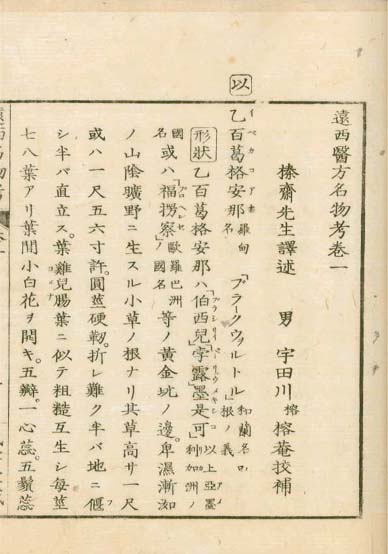 遠西醫方名物考卷一
榛齋先生譯述 男 宇田川榕 榕菴挍補
以
乙百葛格安那 羅甸「ブラークウヲルトル」和蘭名○根ノ義
形状 乙百葛格安那ハ伯西兒 孛露 墨是可 以上亞墨利加洲ノ
國名 或ハ「福楞察」歐羅巴洲ノ國名 等ノ黄金坑ノ邊。卑濕漸洳
ノ山陰曠野ニ生スル小草ノ根ナリ其草高サ一尺
或ハ一尺五六寸許。圓莖硬靱。折レ難ク半バ地ニ偃
シ半バ直立ス。葉雞兒腸葉ニ似テ粗糙互生シ每莖
七八葉アリ葉間小白花ヲ開キ。五瓣。一心蕊。五鬚蕊